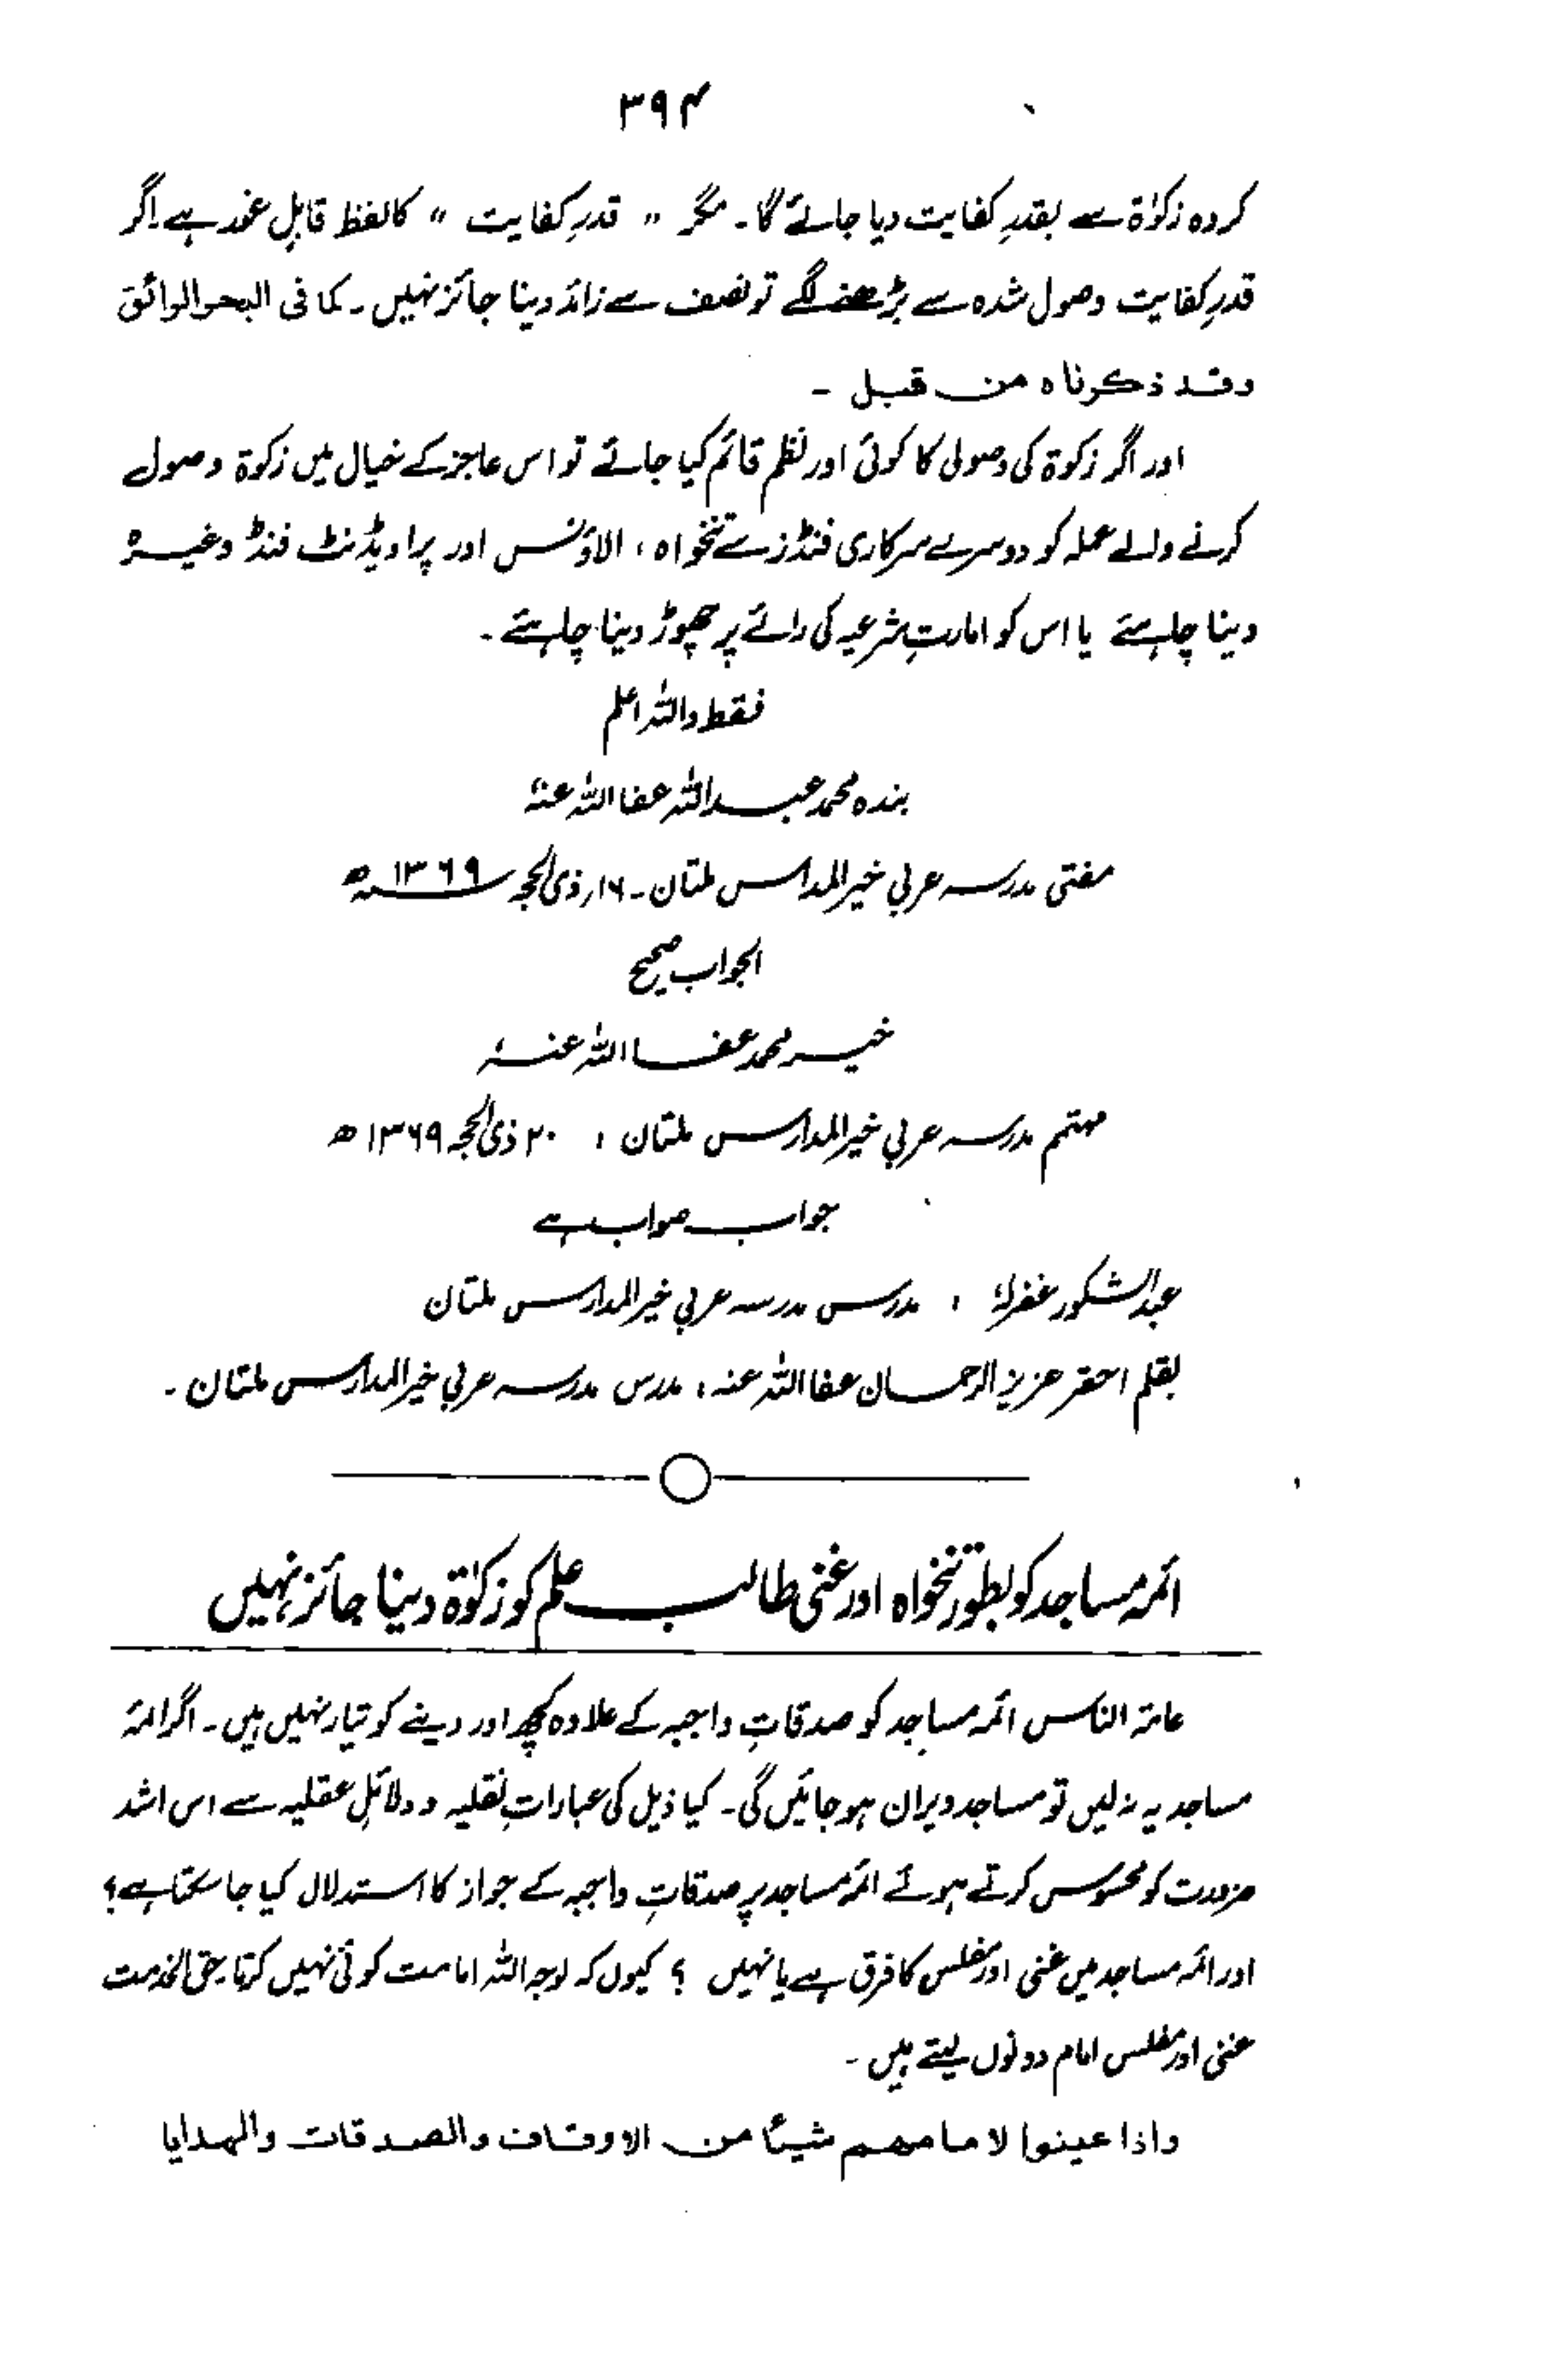 ۳۹۴
کردہ زکوٰۃ سے بقدرِ کفایت دیا جائے گا۔ مگر " قدرِ کفایت " کا لفظ قابلِ غور ہے۔ اگر
قدرِ کفایت وصول شدہ سے بڑھنے لگے تو نصف سے زائد دینا جائز نہیں۔ کما فی البحر الرائق
وقد ذکرناہ من قبل ۔
اور اگر زکوٰۃ کی وصولی کا کوئی اور نظم قائم کیا جائے تو اس عاجز کے خیال میں زکوٰۃ وصول
کرنے والے عملہ کو دوسرے سرکاری فنڈز سے تنخواہ ، الاؤنس اور پراویڈنٹ فنڈ وغیرہ
دینا چاہئے یا اس کو امارتِ شرعیہ کی رائے پر چھوڑ دینا چاہئے ۔
فقط واللہ اعلم
بندہ محمد عبداللہ عفا اللہ عنہٗ
مفتی مدرسہ عربی خیر المدارس ملتان ۔ ۱۶؍ ذی الحجہ سنہ ۱۳۶۹ھ
الجواب صحیح
خیر محمد عفا اللہ عنہٗ
مہتمم مدرسہ عربی خیر المدارس ملتان ، ۲۰ ذی الحجہ ۱۳۶۹ھ
جواب صواب ہے
عبدالشکور غفرلہٗ ، مدرس مدرسہ عربی خیر المدارس ملتان
بقلم احقر عزیز الرحمان عفا اللہ عنہ ، مدرس مدرسہ عربی خیر المدارس ملتان ۔
ائمہ مساجد کو بطور تنخواہ اور غنی طالب علم کو زکوٰۃ دینا جائز نہیں
عامۃ الناس ائمہ مساجد کو صدقاتِ واجبہ کے علاوہ کچھ اور دینے کو تیار نہیں ہیں ۔ اگر ائمہ
مساجد یہ نہ لیں تو مساجد ویران ہو جائیں گی ۔ کیا ذیل کی عباراتِ نقلیہ و دلائلِ عقلیہ سے اس اشد
ضرورت کو محسوس کرتے ہوئے ائمہ مساجد پر صدقاتِ واجبہ کے جواز کا استدلال کیا جا سکتا ہے ؟
اور ائمہ مساجد میں غنی اور مفلس کا فرق ہے یا نہیں ؟ کیوں کہ لوجہ اللہ امامت کوئی نہیں کرتا ۔ حق الخدمت
غنی اور مفلس امام دونوں لیتے ہیں ۔
واذا عینوا لامامھم شیئًا من الاوقاف والصدقات والھدایا